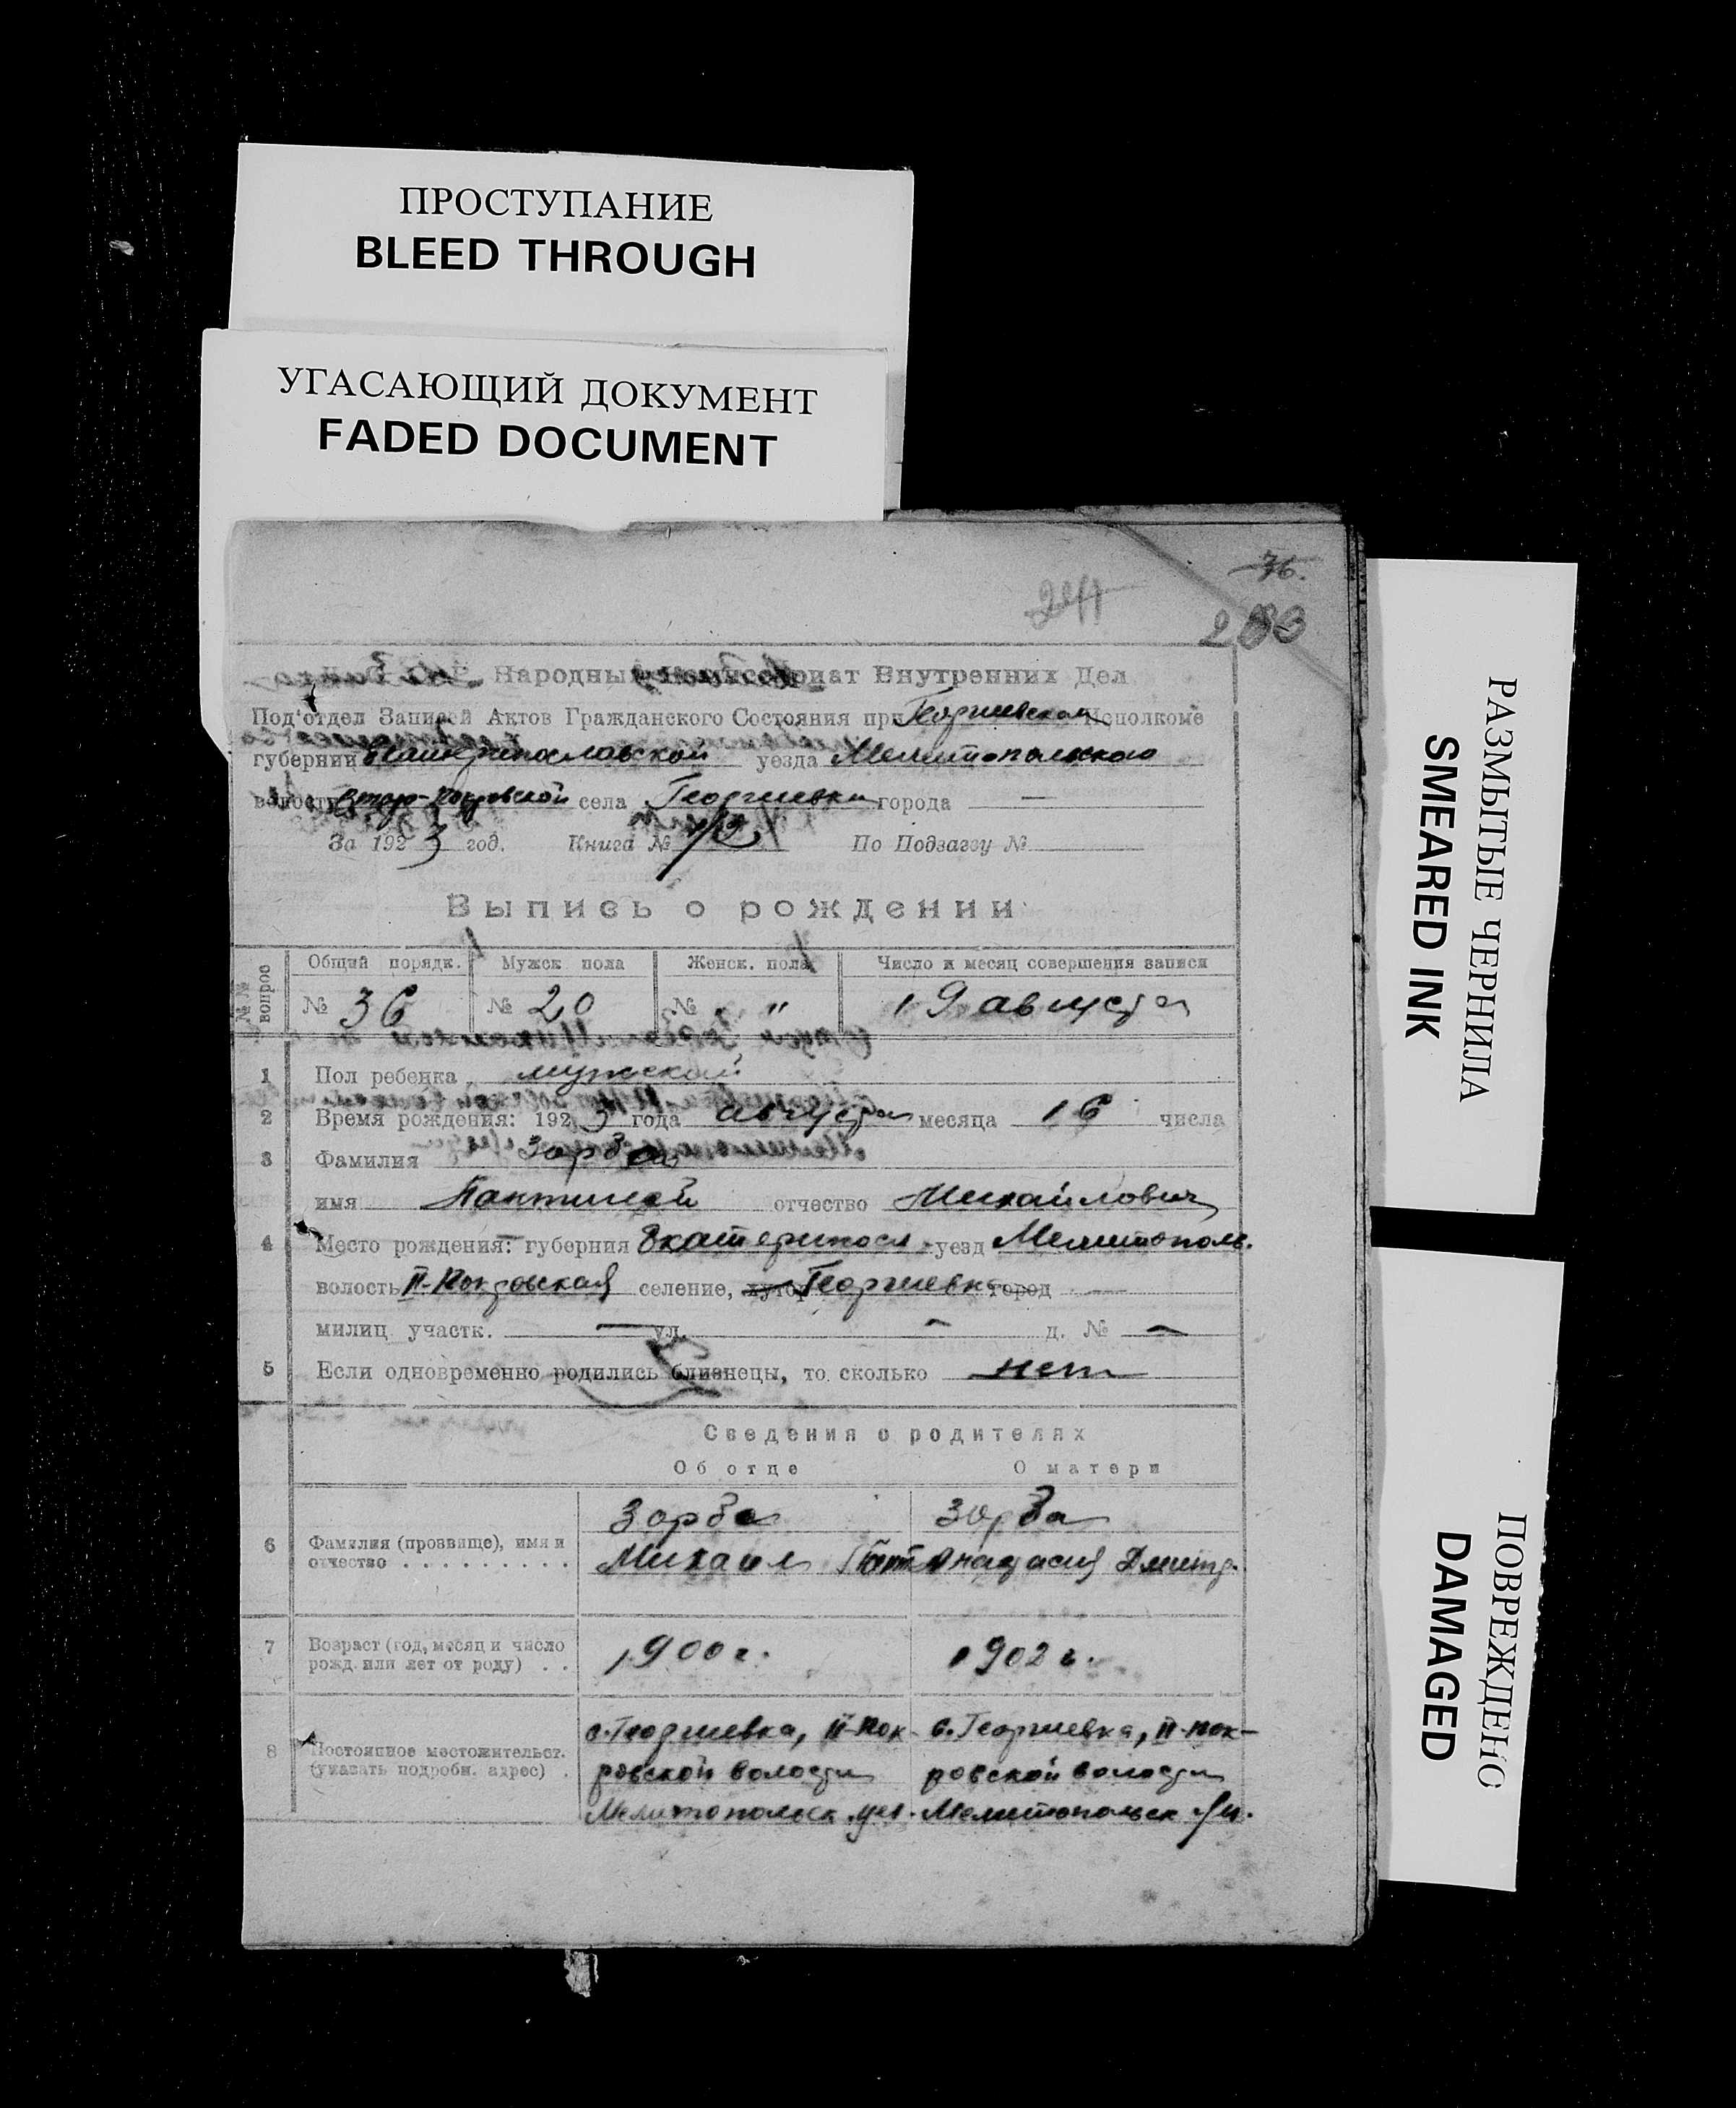 ПРОСТУПАНИЕ
BLEED THROUGH
УГАСАЮЩИЙ ДОКУМЕНТ
FADED DOCUMENT
76.
Народный Комиссариат Внутренних Дел
Под'отдел Записей Актов Гражданского Состояния при Георгиевском Исполкоме
губернии Екатеринославской уезда Мелитопольского
волости Второ-Покровской села Георгиевки города —
За 1923 год. Книга № 1/2 По Подзагсу №
Выпись о рождении
№№ вопрос Общий порядк. Мужск пола Женск. пола Число и месяц совершения записи
№ 36 № 20 № " 19 августа
1 Пол ребенка мужской
2 Время рождения: 1923 года августа месяца 16 числа
3 Фамилия Зорба
имя отчество Михайлович
4 Место рождения: губерния Екатериносл. уезд Мелитополь.
волость II-Покровская селение, хутор Георгиевка город —
милиц участк. — ул. — д. № —
5 Если одновременно родились близнецы, то сколько нет
Сведения о родителях
Об отце О матери
Зорба Зорба
6 Фамилия (прозвище), имя и
отчество . . . . . . . . . Михаил Анастасия Дмитр.
7 Возраст (год, месяц и число
рожд. или лет от роду) . . 1900 г. 1902 г.
с. Георгиевка, II-Пок- с. Георгиевка, II-Пок-
8 Постоянное местожительст.
(указать подробн. адрес) . ровской волости ровской волости
Мелитопольск. уез. Мелитопольск. уез.
РАЗМЫТЫЕ ЧЕРНИЛА
SMEARED INK
ПОВРЕЖДЕНО
DAMAGED